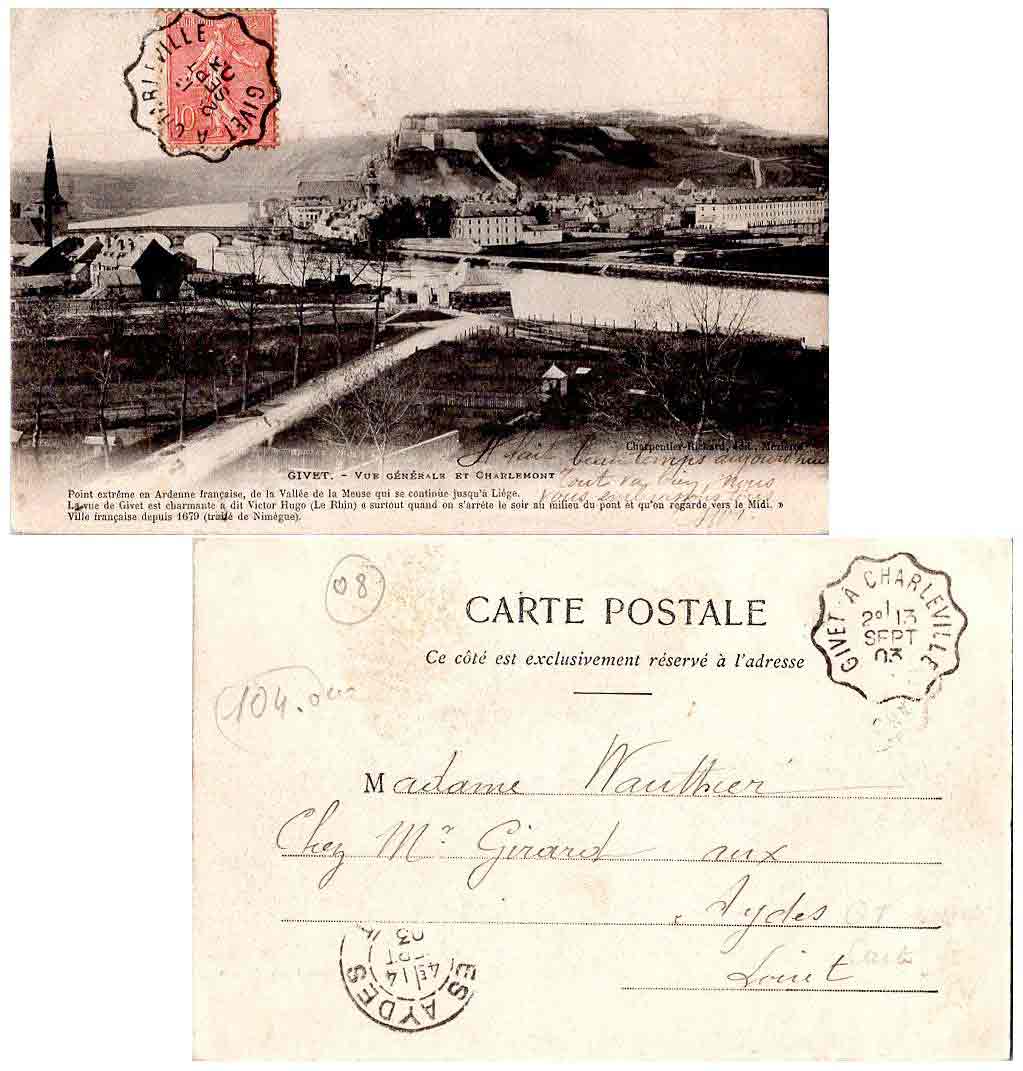 GIVET À CHARLEVILLE
10
Charpentier-Richard, édit., Mézières
GIVET. - VUE GÉNÉRALE ET CHARLEMONT
Il fait beau temps aujourd'hui
Tout va bien, Nous
Vous
Point extrême en Ardenne française, de la Vallée de la Meuse qui se continue jusqu'à Liége.
La vue de Givet est charmante a dit Victor Hugo (Le Rhin) « surtout quand on s'arrête le soir au milieu du pont et qu'on regarde vers le Midi. »
Ville française depuis 1679 (traité de Nimègue).
08
CARTE POSTALE
Ce côté est exclusivement réservé à l'adresse
GIVET À CHARLEVILLE
2º 13
SEPT
03
104.
Madame Wauthier
Chez Mr Girard aux
Aydes
Loiret
ES AYDES
4E 14
PT
03